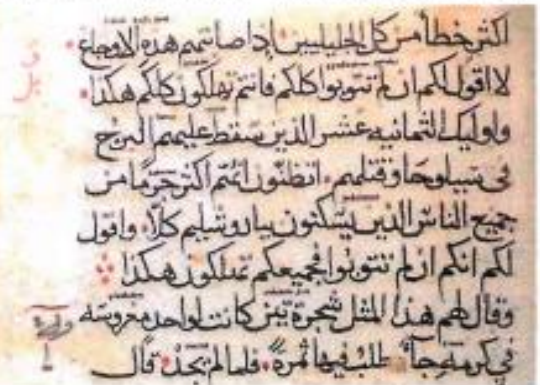 اكثر خطأ من كل الجليليين اذا صابتهم هذه الاوجاع
لا اقول لكم ان لم تتوبوا كلكم فانتم تهلكون كلكم هكذا
واوليك الثمانيه عشر الذين سقط عليهم البرج
في سيلوحا وقتلهم اتظنون انهم اكثر جرما من
جميع الناس الذين يسكنون بياروشليم كلا واقول
لكم انكم ان لم تتوبوا فجميعكم تهلكون هكذا
وقال لهم هذا المثل شجرة تين كانت لواحد مغروسه
في كرمه جآ طلب فيها ثمرة فلما لم يجد قال